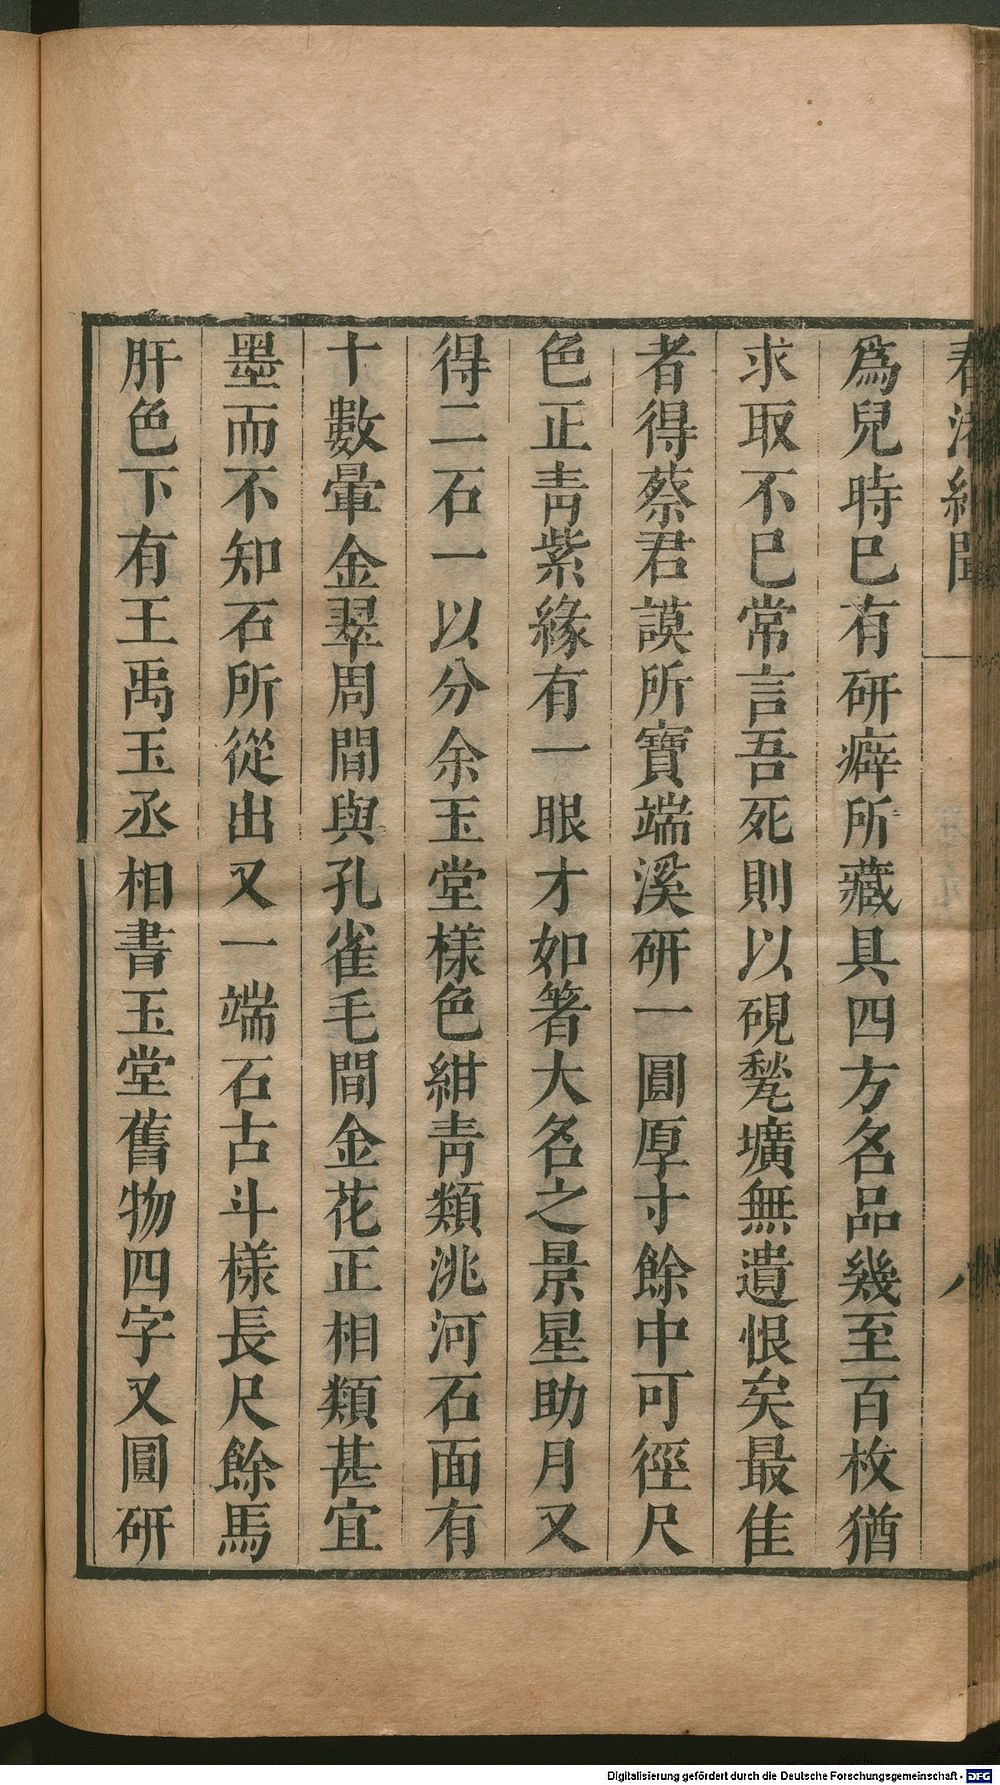 春渚紀聞
八
爲兒時已有研癖所藏具四方名品幾至百枚猶
求取不已常言吾死則以硯甃壙無遺恨矣最佳
者得蔡君謨所寶端溪研一圓厚寸餘中可徑尺
色正靑紫緣有一眼才如箸大名之景星助月又
得二石一以分余玉堂樣色紺靑類洮河石面有
十數暈金翠周間與孔雀毛間金花正相類甚宜
墨而不知石所從出又一端石古斗樣長尺餘馬
肝色下有王禹玉丞相書玉堂舊物四字又圓研
Digitalisierung gefördert durch die Deutsche Forschungsgemeinschaft - DFG